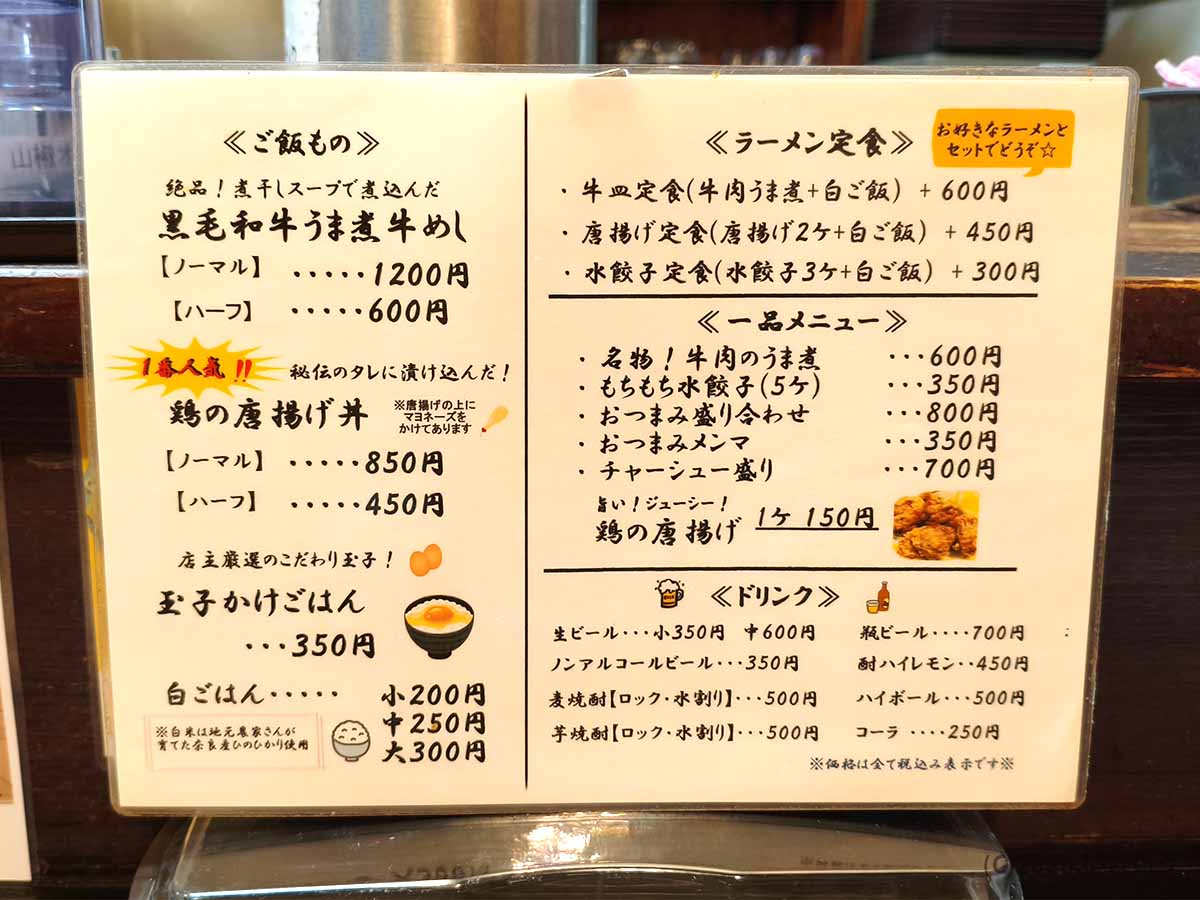 ≪ご飯もの≫
絶品！煮干しスープで煮込んだ
黒毛和牛うま煮牛めし
【ノーマル】 ･････1200円
【ハーフ】 ･････600円
1番人気!!
秘伝のタレに漬け込んだ！
鶏の唐揚げ丼
※唐揚げの上に
マヨネーズを
かけてあります
【ノーマル】 ･････850円
【ハーフ】 ･････450円
店主厳選のこだわり玉子！
玉子かけごはん
･･･350円
白ごはん･････ 小200円
中250円
大300円
※白米は地元農家さんが
育てた奈良産ひのひかり使用
≪ラーメン定食≫
お好きなラーメンと
セットでどうぞ☆
・牛皿定食(牛肉うま煮+白ご飯) + 600円
・唐揚げ定食(唐揚げ2ケ+白ご飯) + 450円
・水餃子定食(水餃子3ケ+白ご飯) + 300円
≪一品メニュー≫
・名物！牛肉のうま煮 ･･･600円
・もちもち水餃子(5ケ) ･･･350円
・おつまみ盛り合わせ ･･･800円
・おつまみメンマ ･･･350円
・チャーシュー盛り ･･･700円
旨い！ジューシー！
鶏の唐揚げ 1ケ 150円
≪ドリンク≫
生ビール･･･小350円 中600円 瓶ビール････700円
ノンアルコールビール･･･350円 酎ハイレモン･･450円
麦焼酎【ロック・水割り】･･･500円 ハイボール･･･500円
芋焼酎【ロック・水割り】･･･500円 コーラ ････250円
※価格は全て税込み表示です※